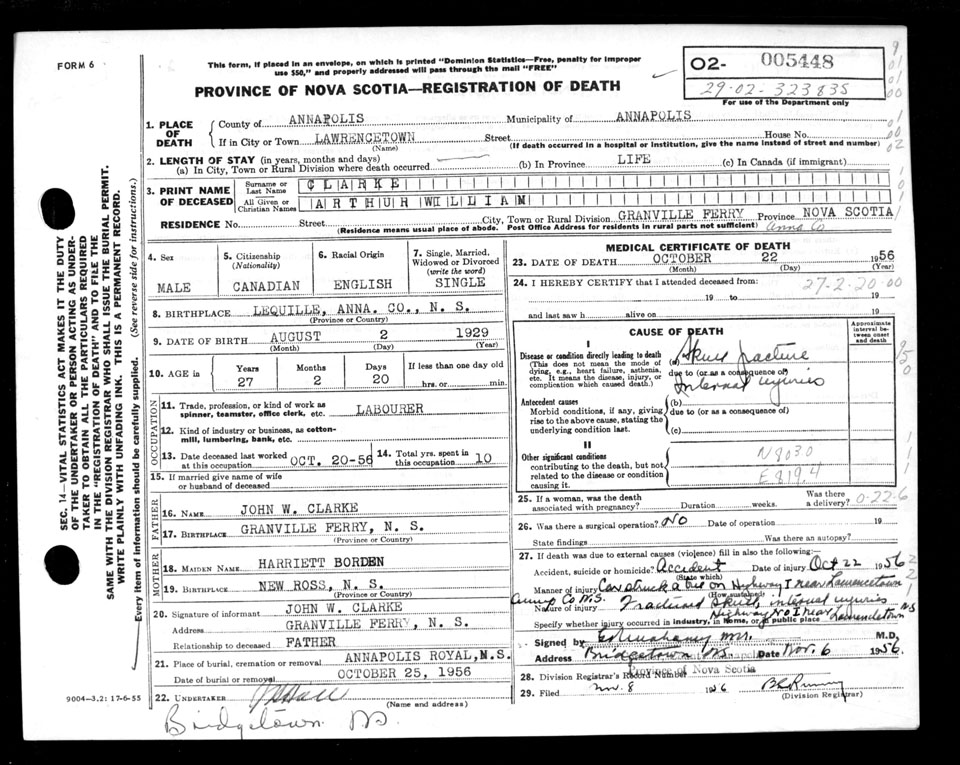 FORM 6
This form, if placed in an envelope, on which is printed "Dominion Statistics—Free, penalty for improper
use $50," and properly addressed will pass through the mail "FREE"
PROVINCE OF NOVA SCOTIA—REGISTRATION OF DEATH
02- 005448
29-02-323835
For use of the Department only
1. PLACE OF DEATH
County of ANNAPOLIS Municipality of ANNAPOLIS
If in City or Town LAWRENCETOWN Street House No.
(Name) (If death occurred in a hospital or institution, give the name instead of street and number)
2. LENGTH OF STAY (in years, months and days)
(a) In City, Town or Rural Division where death occurred (b) In Province LIFE (c) In Canada (if immigrant)
3. PRINT NAME OF DECEASED
Surname or Last Name CLARKE
All Given or Christian Names ARTHUR WILLIAM
RESIDENCE No. Street City, Town or Rural Division GRANVILLE FERRY Province NOVA SCOTIA
(Residence means usual place of abode. Post Office Address for residents in rural parts not sufficient) Anna Co
4. Sex
MALE
5. Citizenship (Nationality)
CANADIAN
6. Racial Origin
ENGLISH
7. Single, Married, Widowed or Divorced (write the word)
SINGLE
8. BIRTHPLACE LEQUILLE, ANNA. CO., N. S.
(Province or Country)
9. DATE OF BIRTH AUGUST 2 1929
(Month) (Day) (Year)
10. AGE in
Years Months Days If less than one day old
27 2 20 hrs. or min.
OCCUPATION
11. Trade, profession, or kind of work as
spinner, teamster, office clerk, etc. LABOURER
12. Kind of industry or business, as cotton-
mill, lumbering, bank, etc.
13. Date deceased last worked at this occupation OCT. 20-56
14. Total yrs. spent in this occupation 10
15. If married give name of wife
or husband of deceased
FATHER
16. NAME JOHN W. CLARKE
17. BIRTHPLACE GRANVILLE FERRY, N. S.
(Province or Country)
MOTHER
18. MAIDEN NAME HARRIETT BORDEN
19. BIRTHPLACE NEW ROSS, N. S.
(Province or Country)
20. Signature of informant JOHN W. CLARKE
Address GRANVILLE FERRY, N. S.
Relationship to deceased FATHER
21. Place of burial, cremation or removal ANNAPOLIS ROYAL, N.S.
Date of burial or removal OCTOBER 25, 1956
22. UNDERTAKER
(Name and Address)
Bridgetown NS.
9004-3.2: 17-6-55
MEDICAL CERTIFICATE OF DEATH
23. DATE OF DEATH OCTOBER 22 1956
(Month) (Day) (Year)
24. I HEREBY CERTIFY that I attended deceased from: 27-2-20-00
19 to 19
and last saw h alive on 19
CAUSE OF DEATH
Approximate interval between onset and death
I
Disease or condition directly leading to death
(This does not mean the mode of dying, e.g., heart failure, asthenia, etc. It means the disease, injury, or complication which caused death.)
(a) Skull fracture
due to (or as a consequence of)
Internal injuries
Antecedent causes
Morbid conditions, if any, giving rise to the above cause, stating the underlying condition last.
(b)
due to (or as a consequence of)
(c)
II
Other significant conditions
contributing to the death, but not related to the disease or condition causing it.
N8030
E819.4
25. If a woman, was the death associated with pregnancy? Duration weeks. Was there a delivery? 0-22-6
26. Was there a surgical operation? NO Date of operation 19
State findings Was there an autopsy?
27. If death was due to external causes (violence) fill in also the following:
Accident, suicide or homicide? Accident Date of injury Oct 22 1956
(State which)
Manner of injury Car struck a tree on Highway 1 near Lawrencetown
Anna Co N.S. (How sustained)
Nature of injury Fractured skull, internal injuries
Highway No 1 near Lawrencetown NS
Specify whether injury occurred in industry, in home, or in public place
Signed by M.D.
Address Bridgetown NS. Date Nov. 6 1956.
Province of Nova Scotia
28. Division Registrar's Record Number
29. Filed Nov. 8 1956
(Division Registrar)
SEC. 14—VITAL STATISTICS ACT MAKES IT THE DUTY
OF THE UNDERTAKER OR PERSON ACTING AS UNDER-
TAKER TO OBTAIN ALL THE PARTICULARS REQUIRED
IN THE "REGISTRATION OF DEATH" AND TO FILE THE
SAME WITH THE DIVISION REGISTRAR WHO SHALL ISSUE THE BURIAL PERMIT.
WRITE PLAINLY WITH UNFADING INK. THIS IS A PERMANENT RECORD.
Every item of information should be carefully supplied. (See reverse side for instructions.)